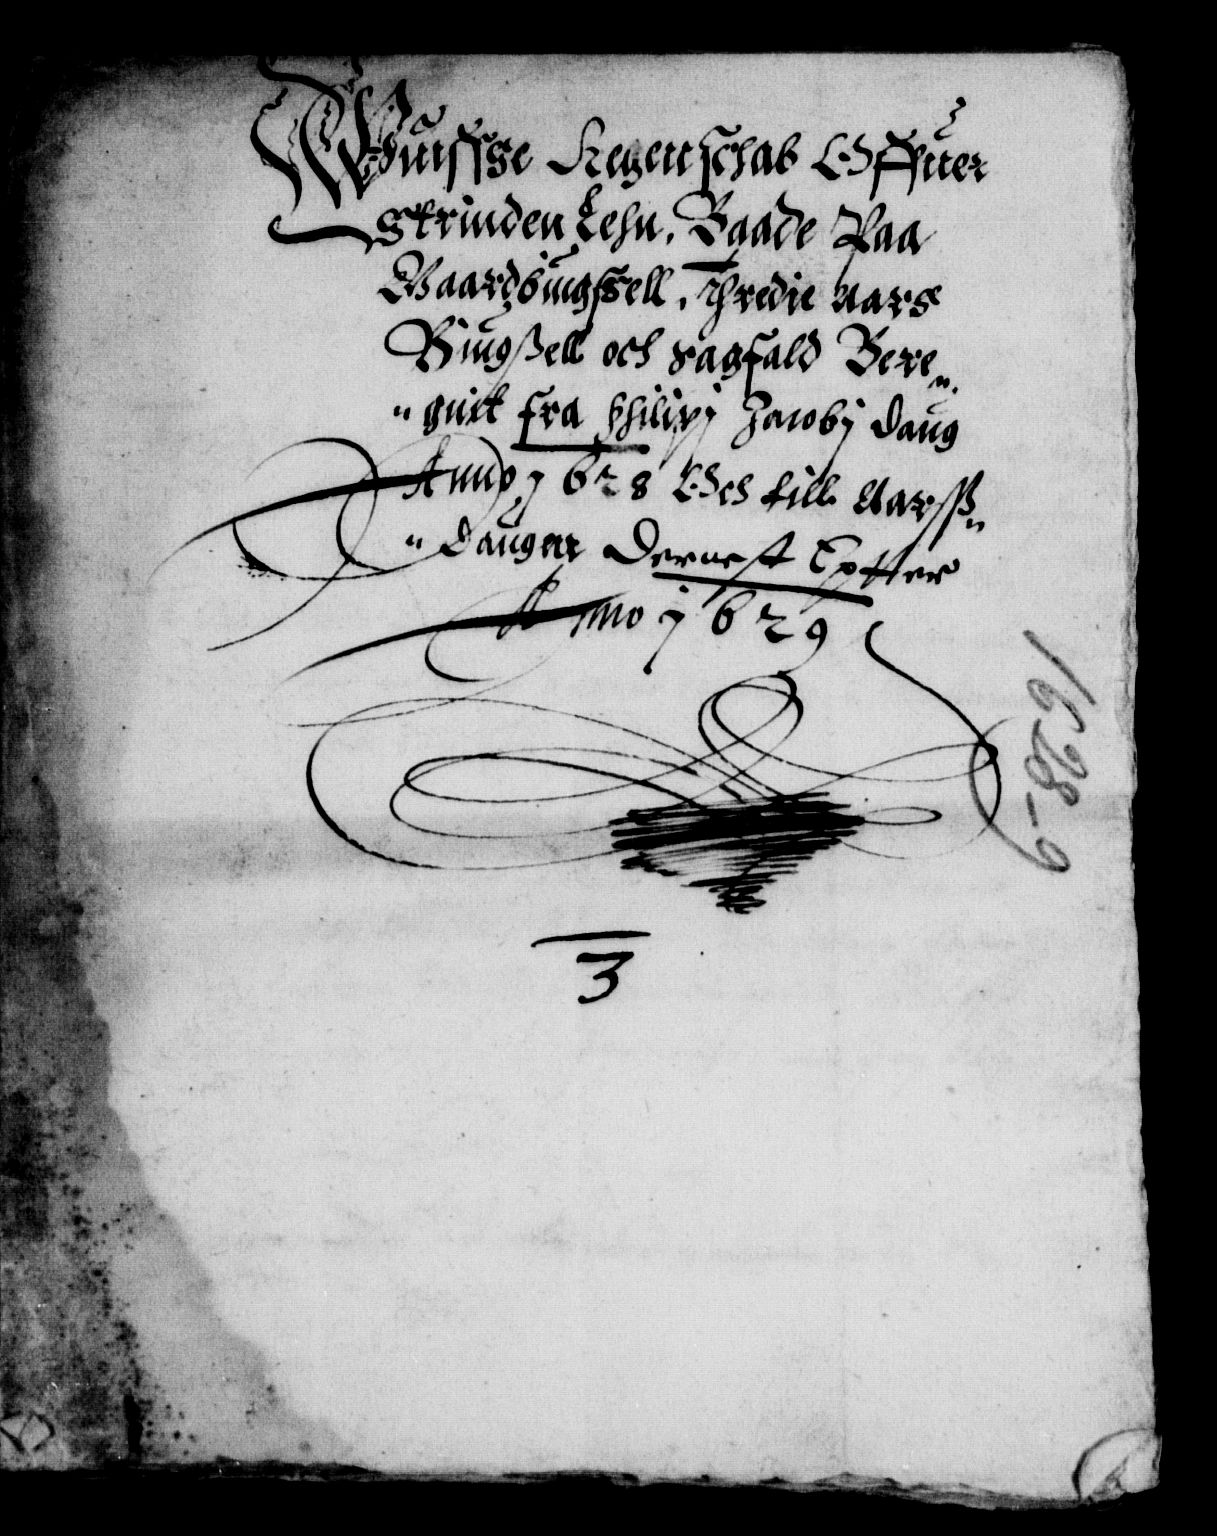 Wuisse Regenschab Offuer
Strinden Lehn, Baade Paa
Vaardbuugsell, Thredie Aars
Biugßell och Sagfald Bere„
„gnit fra Philipj Jacobj Daug
Anno 1628 Och till Aarss„
„Daugen Dernest Epter
Anno 1629
3
1628-9